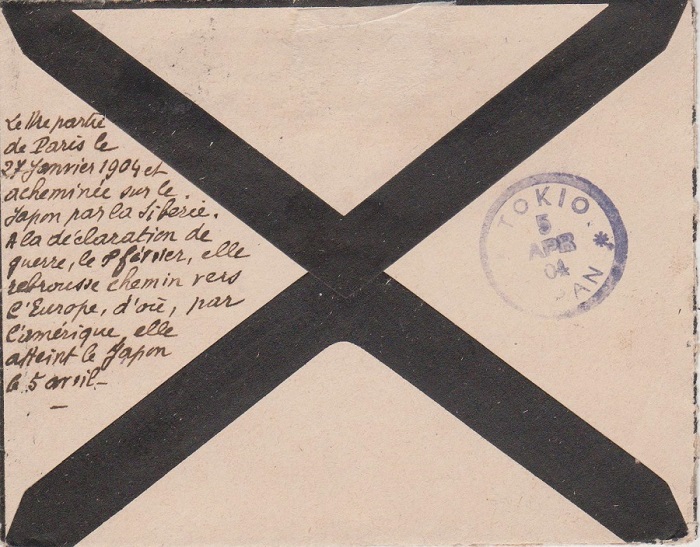 Lettre partie
de Paris le
27 Janvier 1904 et
acheminée sur le
Japon par la Sibérie.
A la déclaration de
guerre, le 8 février, elle
rebrousse chemin vers
l'Europe, d'où, par
l'amérique elle
atteint le Japon
le 5 avril —
TOKIO.
5
APR
04
PAN